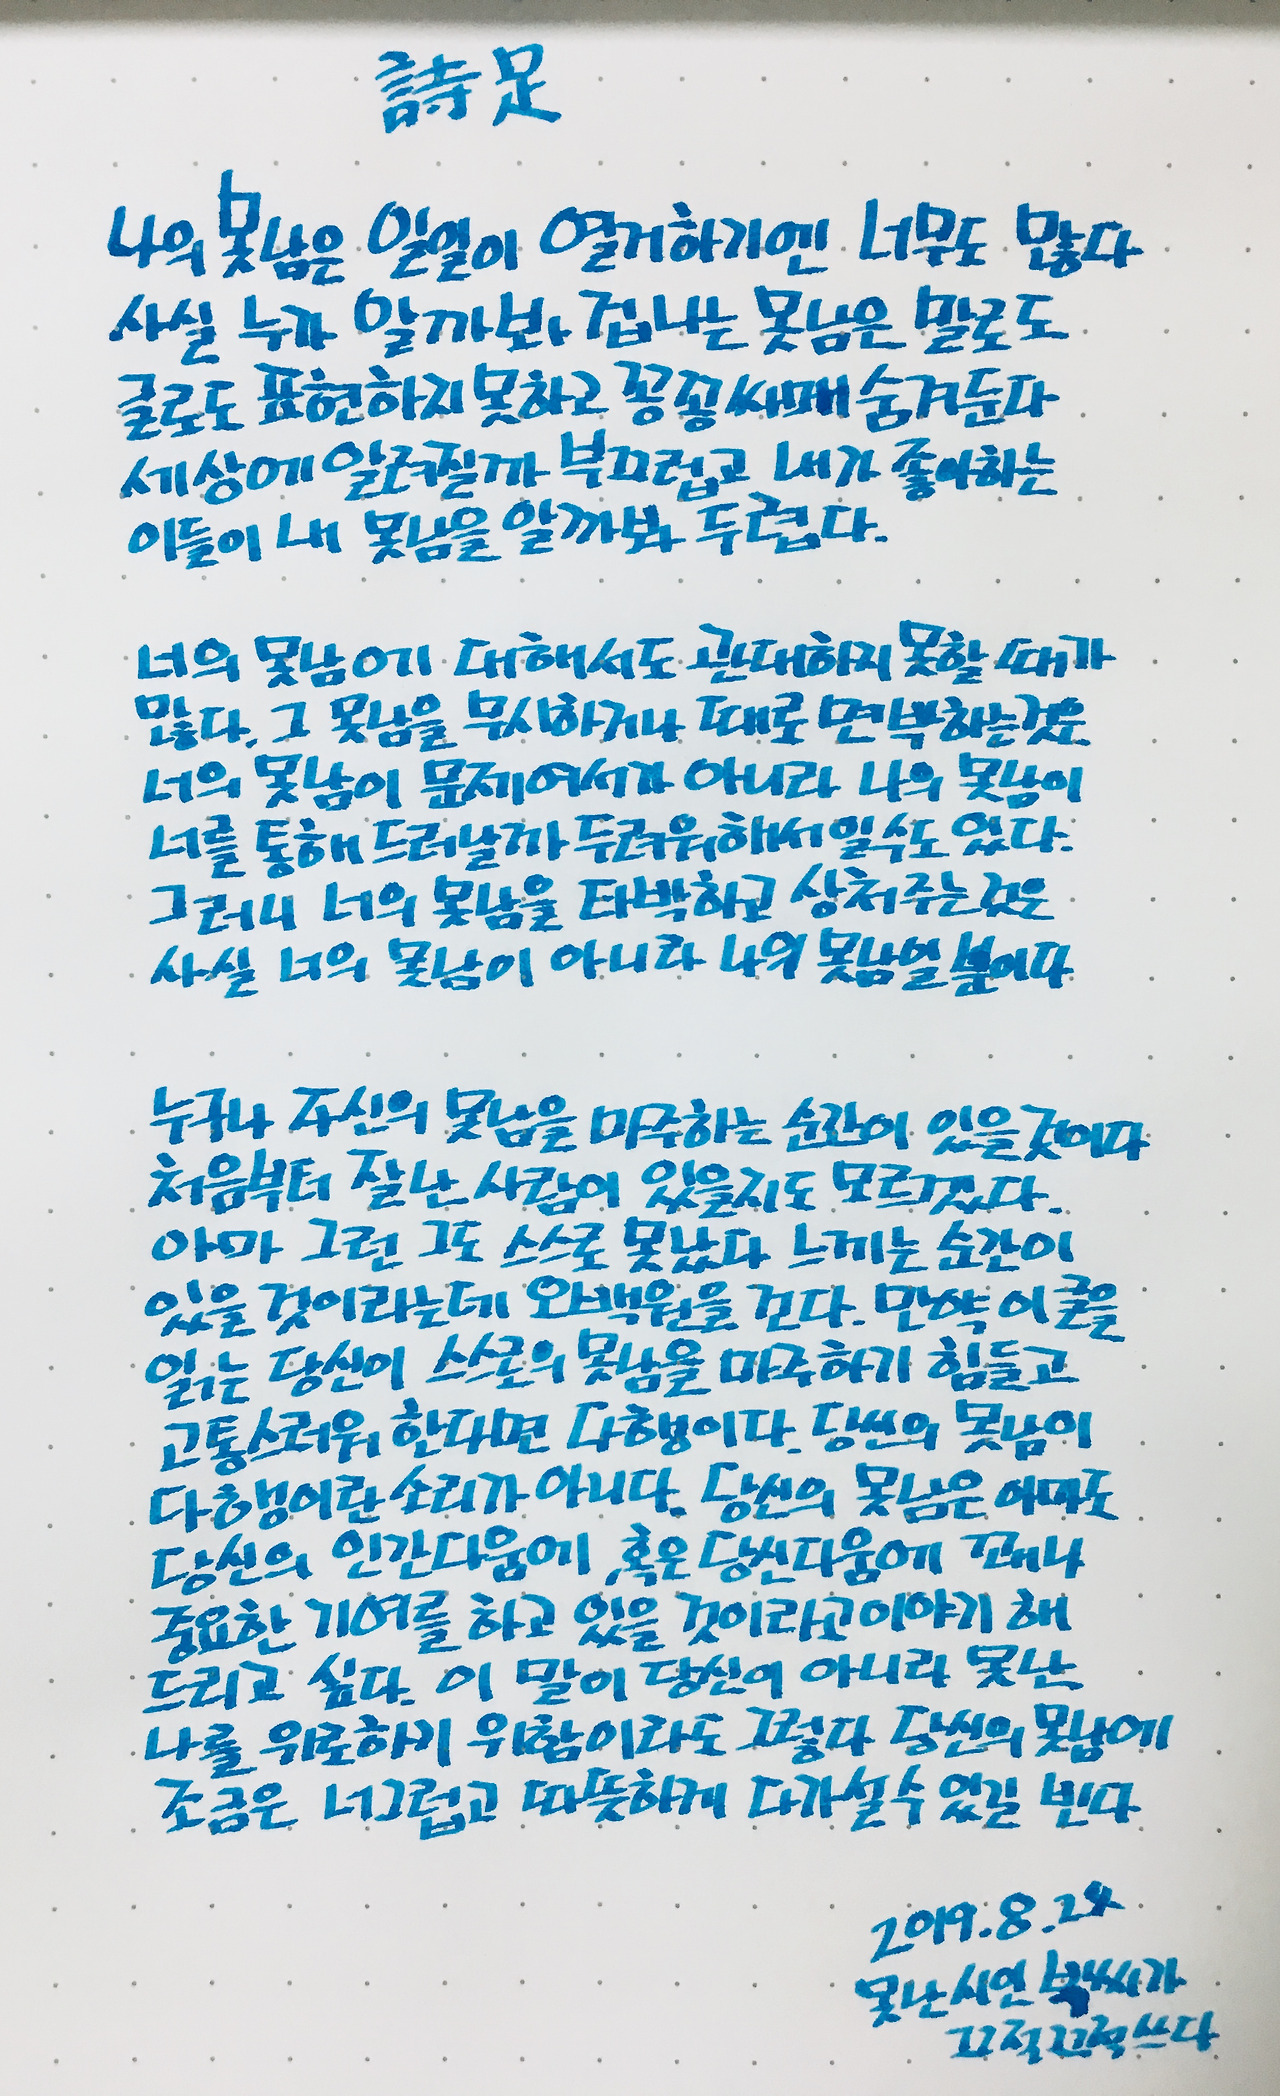 詩足
나의 못남은 일일이 열거하기엔 너무도 많다
사실 누가 알까봐 겁나는 못남은 말로도
글로도 표현하지 못하고 꽁꽁 싸매 숨겨둔다
세상에 알려질까 부끄럽고 내가 좋아하는
이들이 내 못남을 알까봐 두렵다.
너의 못남에 대해서도 관대하지 못할 때가
많다. 그 못남을 무시하거나 때로 면박하는것은
너의 못남이 문제여서가 아니라 나의 못남이
너를 통해 드러날까 두려워해서 일수도 있다.
그러니 너의 못남을 타박하고 상처주는것은
사실 너의 못남이 아니라 나의 못남일 뿐이다
누구나 자신의 못남을 마주하는 순간이 있을것이다
처음부터 잘난 사람이 있을지도 모르겠다.
아마 그런 그도 스스로 못났다 느끼는 순간이
있을 것이라는데 오백원을 건다. 만약 이 글을
읽는 당신이 스스로의 못남을 마주하기 힘들고
고통스러워 한다면 다행이다. 당신의 못남이
다행이란 소리가 아니다. 당신의 못남은 아마도
당신의 인간다움에 혹은 당신다움에 꽤나
중요한 기여를 하고 있을 것이라고 이야기 해
드리고 싶다. 이 말이 당신이 아니라 못난
나를 위로하기 위함이라도 그렇다 당신의 못남에
조금은 너그럽고 따뜻하게 다가설 수 있길 빈다
2019.8.24
못난 시인 가
끄적끄적 쓰다